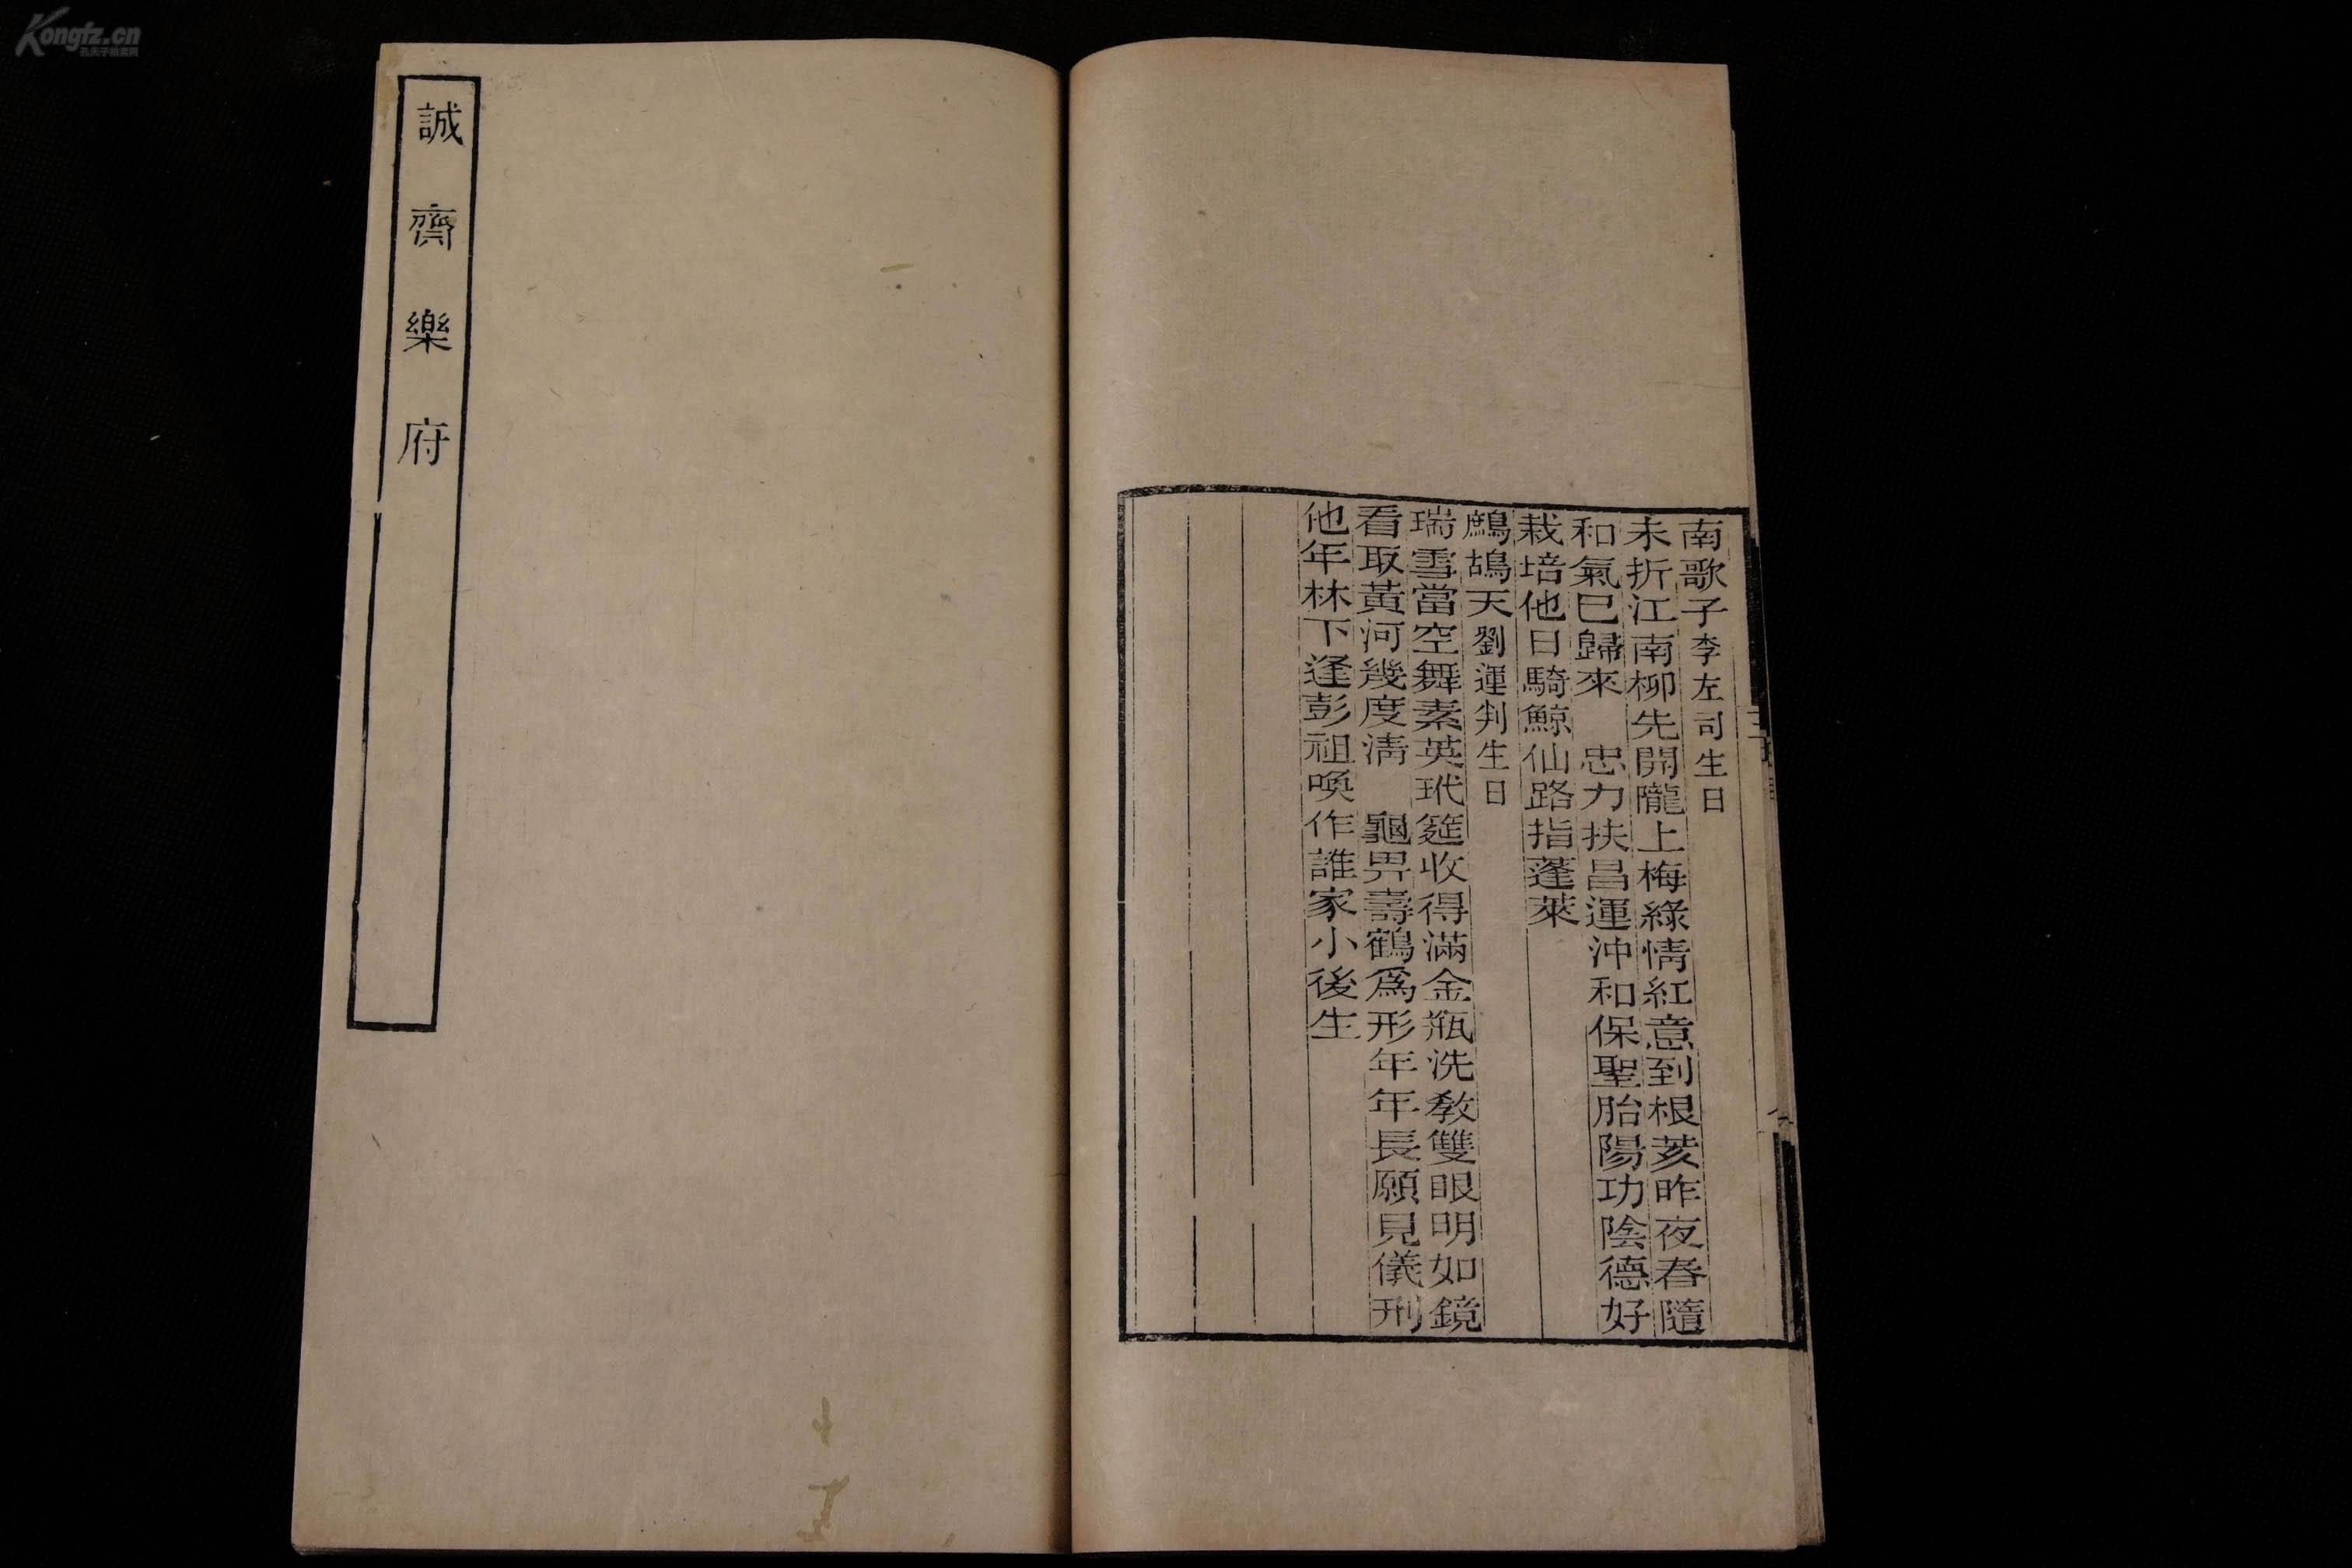 南歌子李左司生日
未折江南柳先開隴上梅綠情紅意到根荄昨夜春隨
和氣巳歸來　忠力扶昌運沖和保聖胎陽功陰德好
栽培他日騎鯨仙路指蓬萊
鷓鴣天劉運判生日
瑞雪當空舞素英玳筵收得滿金瓶洗教雙眼明如鏡
看取黃河幾度清　龜畀壽鶴爲形年年長願見儀刑
他年林下逢彭祖喚作誰家小後生
誠齋樂府
Kongfz.cn
孔夫子拍卖网